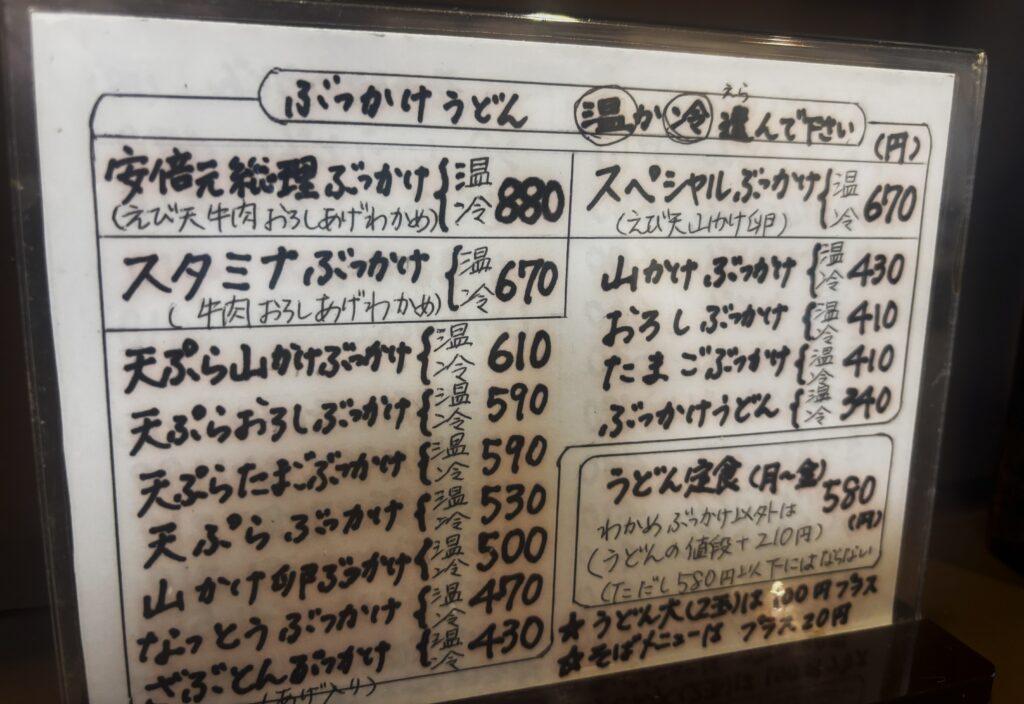 ぶっかけうどん 温か冷選んで下さい
えら
(円)
安倍元総理ぶっかけ 温 冷 880
(えび天 牛肉 おろしあげわかめ)
スタミナぶっかけ 温 冷 670
(牛肉 おろしあげわかめ)
天ぷら山かけぶっかけ 温 冷 610
天ぷらおろしぶっかけ 温 冷 590
天ぷらたまごぶっかけ 温 冷 590
天ぷらぶっかけ 温 冷 530
山かけ卵ぶっかけ 温 冷 500
なっとうぶっかけ 温 冷 470
ざぶとんぶっかけ 温 冷 430
(あげ入り)
スペシャルぶっかけ 温 冷 670
(えび天山かけ卵)
山かけぶっかけ 温 冷 430
おろしぶっかけ 温 冷 410
たまごぶっかけ 温 冷 410
ぶっかけうどん 温 冷 340
うどん定食(月〜金) 580
(円)
わかめぶっかけ以外は
(うどんの値段+210円)
(ただし580円以下にはならない
★うどん大(2玉)は100円プラス
★そばメニューは プラス20円